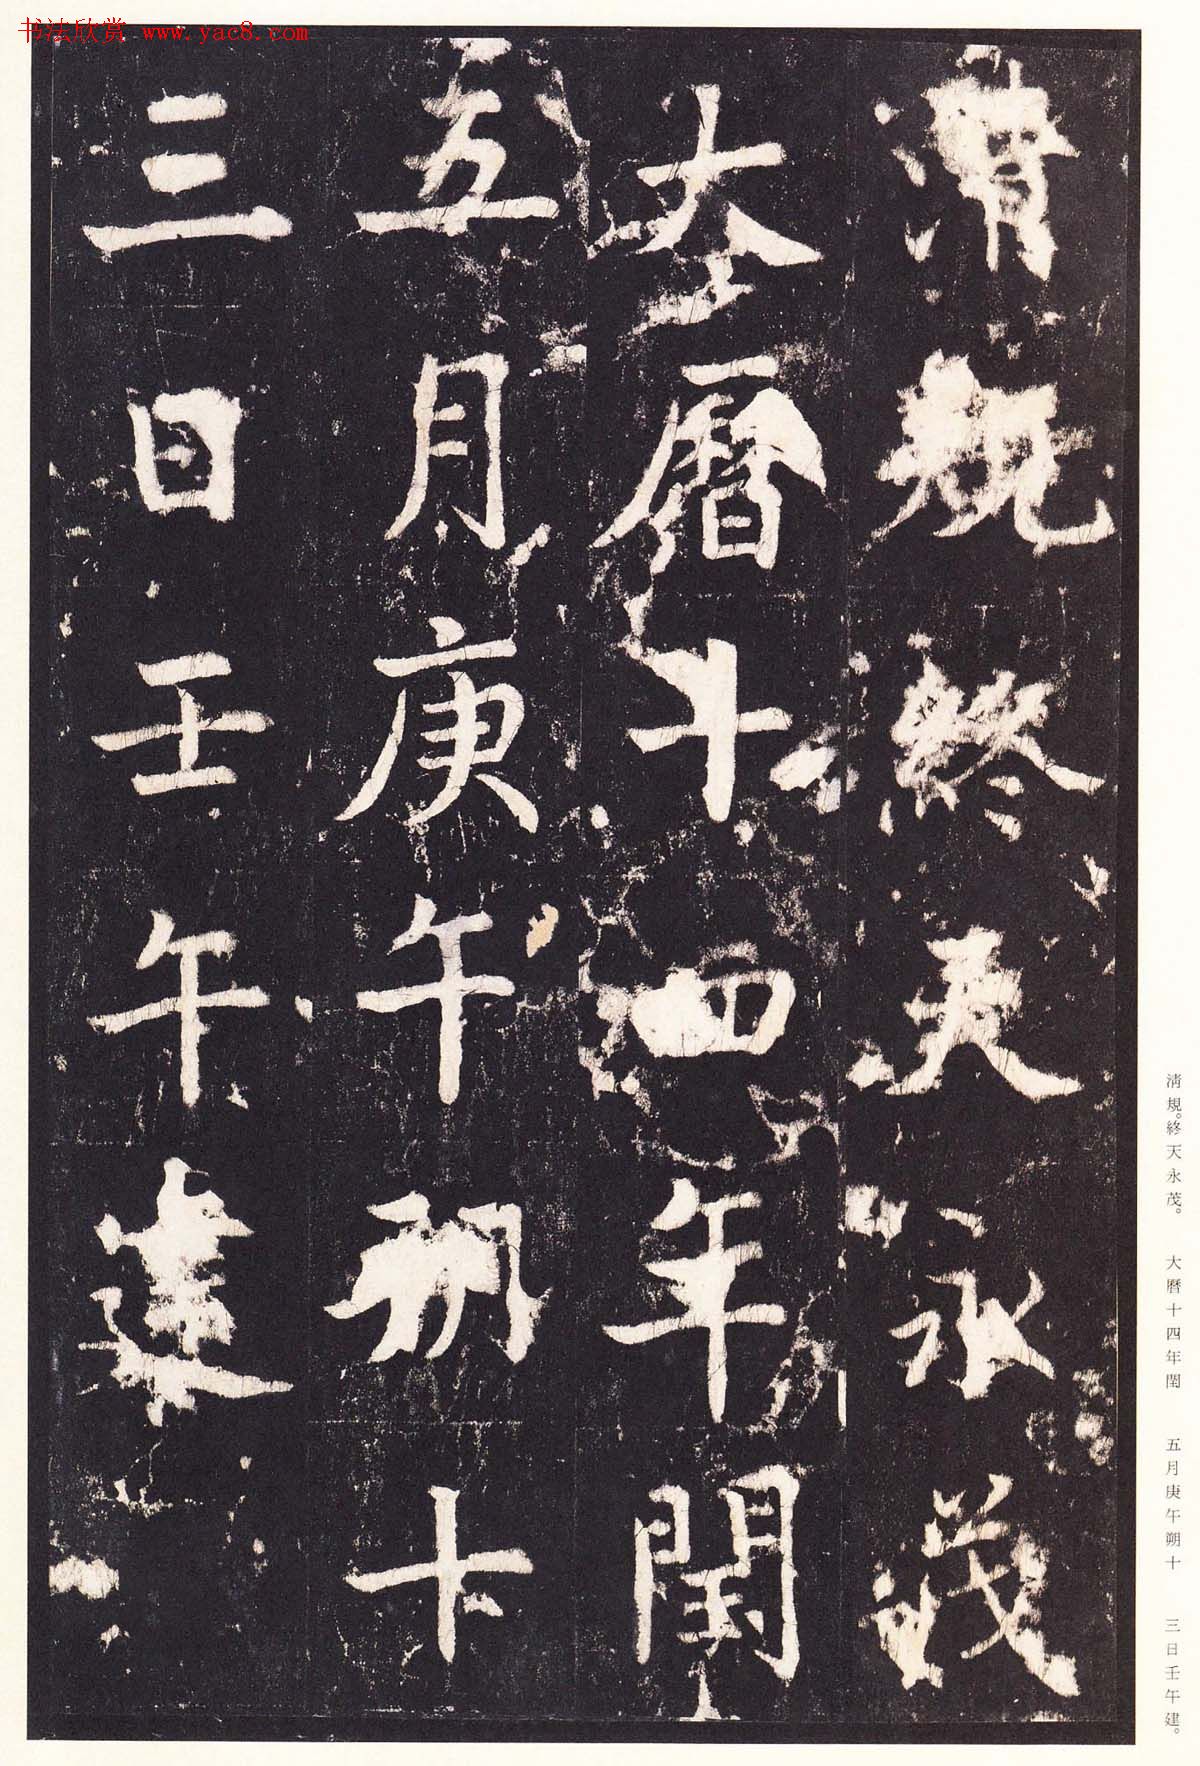 书法欣赏 www.yac8.com
清規終天永茂
大曆十四年閏
五月庚午朔十
三日壬午建
淸規。終天永茂。 大曆十四年閏 五月庚午朔十 三日壬午建。